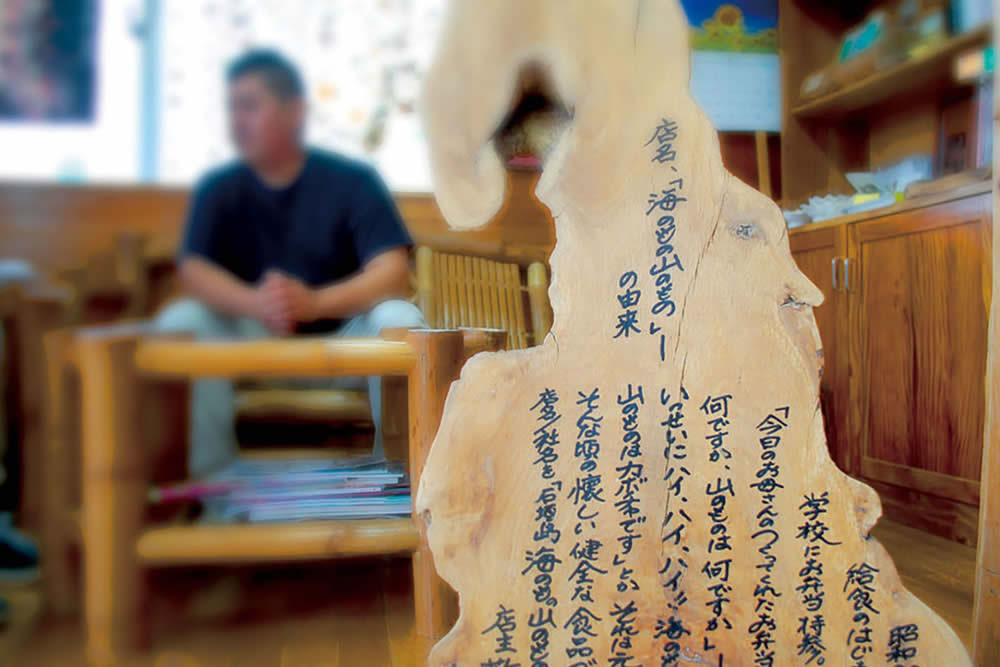 店名、「海のもの山のもの」ー
の由来
昭和
給食のはじ
学校にお弁当持参
「今日のお母さんのつくってくれたお弁当
何ですか、山のものは何ですか」ー
いっせいにハイ、ハイ、ハイ!! 海のも
山のものはカボチャです」とか それは元
そんな頃の懐しい健全な食品づ
店名/社名を「石垣島 海のもの山のもの
店主 敬